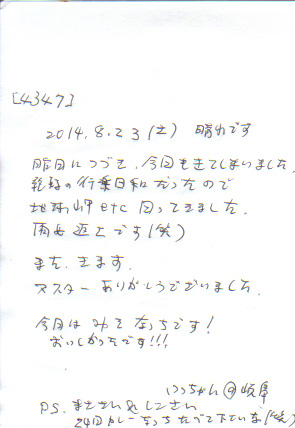 [4347]
2014.8.23(土) 晴れです
昨日につづき、今日もきてしまいました
絶好の行楽日和だったので
地球岬etc回ってきました。
また、きます。
マスターありがとうございました。
今日はみそなっちです!
おいしかったです!!!
いっちゃん@岐阜
P.S. まささん&しンさん
24日カレーなっちたべて下さいネ(笑)